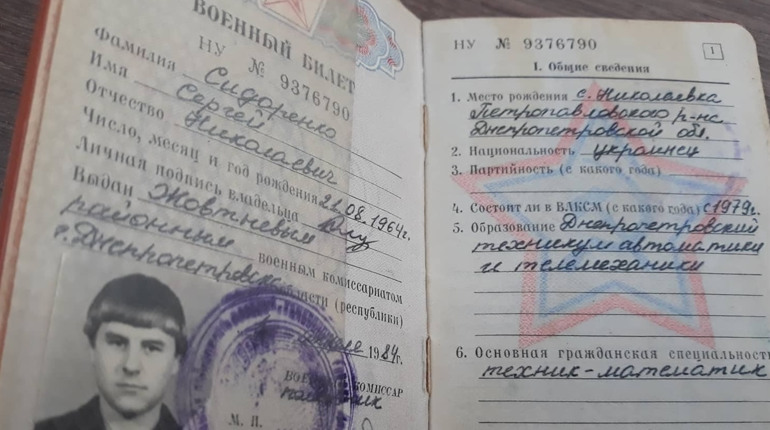 ВОЕННЫЙ БИЛЕТ
НУ № 9376790
Фамилия Сидоренко
Имя Сергей
Отчество Николаевич
Число, месяц и год рождения 21.08.1964г.
Личная подпись владельца
Выдан Жовтневым
районным военным комиссариатом
г.Днепропетровска области (республики)
1984г.
ВОЕННЫЙ КОМИССАР
М. П.
НУ № 9376790
1
I. Общие сведения
1. Место рождения с. Николаевка
Петропавловского р-на
Днепропетровской обл.
2. Национальность украинец
3. Партийность (с какого года)
4. Состоит ли в ВЛКСМ (с какого года) с 1979г.
5. Образование Днепропетровский
техникум автоматики
и телемеханики
6. Основная гражданская специальность
техник-математик